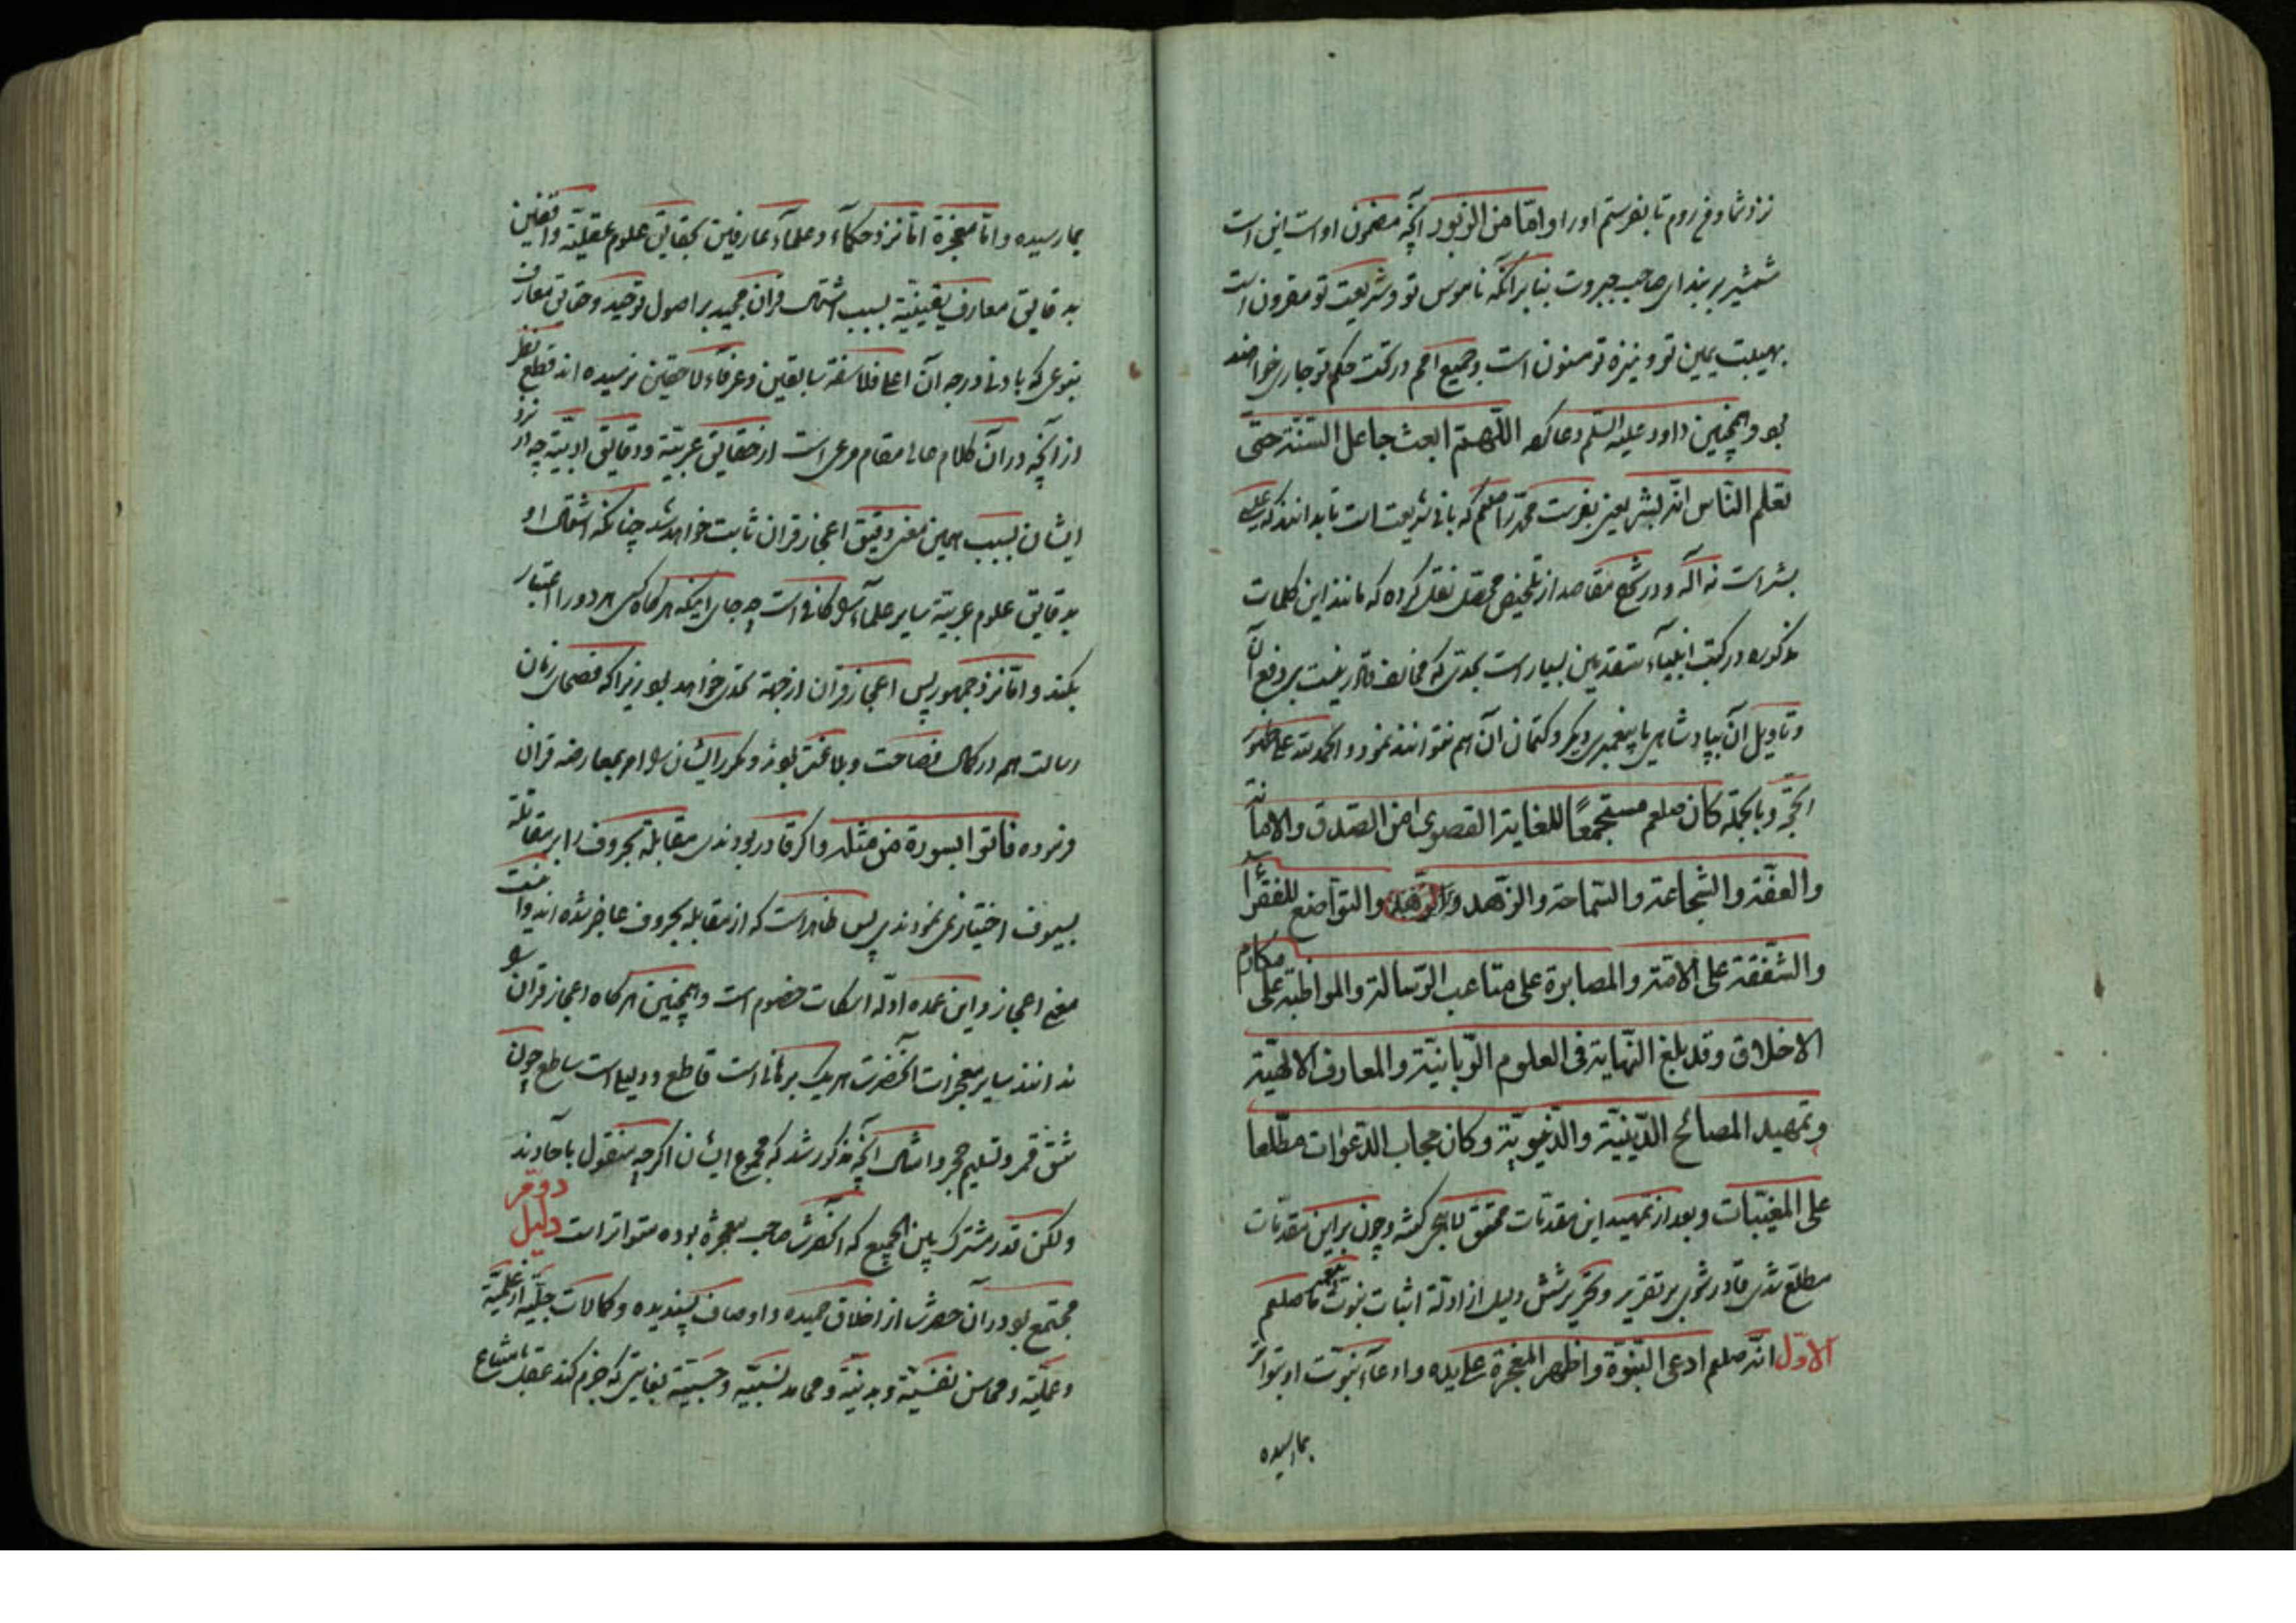 نزد شما و فع روم تا بفرستم اورا و اما من الزبور آنچه مضمون او است این است
شمشیر بر بند ای صاحب جبروت بنا بر آنکه ناموس تو و شریعت تو مقرون است
بهیبت یمین تو و نیزه تو مسنون است و جمیع امم در تحت حکم تو جاری خواهند
بود و همچنین داود علیه السلم دعا کرد اللّهمّ ابعث جاعل السّنّة حتّی
تعلم النّاس انّه بشر یعنی بفرست محمّد را صلعم که بانی شریعت است تا بدانند که عیسی
بشر است نه اله و در شرح مقاصد از تلخیص محصّل نقل کرده که مانند این کلمات
مذکوره در کتب انبیاء متقدمین بسیار است بحدی که مخالف قادر نیست بر دفع آن
و تاویل آن بپادشاهی یا پیغمبری دیگر و کتمان آن هم نتوانند نمود و الحمد لله علی ظهور
الحجّة و بالجمله کان صلعم مستجمعًا للغایة القصوی من الصّدق والامانة
والعفّة والشجاعة والسّماحة والزّهد والزّهد والتواضع للفقرآ
والشّفقة علی الامّة والمصابرة علی متاعب الرّسالة والمواظبة علی مکارم
الاخلاق وقد بلغ النّهایة فی العلوم الرّبانیّة والمعارف الالهیّة
وتمهید المصالح الدّینیّة والدّنیویّة وکان مجاب الدّعوات مطّلعا
علی المغیّبات و بعد از تمهید این مقدمات محقق لاهجی گفته و چون بر این مقدمات
مطلع شدی قادر شوی بر تقریر و تحریر شش دلیل از ادلّة اثبات نبوت پیغمبر ما صلعم
الاوّل انّه صلعم ادعی النبوّة و اظهر المعجزة علی یده و ادعآء نبوّت او بتواتر
بما رسیده
بما رسیده و امّا معجزة امّا نزد حکمآء و علمآء عارفین بحقایق علوم عقلیّه واقفین
بدقایق معارف یقینیّة بسبب اشتمال قران مجید بر اصول توحید و حقایق معارف
بنوعی که بادنی درجه آن اعاظم فلاسفة سابقین و عرفآء لاحقین نرسیده اند قطع نظر
از آنچه در آن کلام عالی مقام مرعی است از حقایق عربیّة و دقایق ادبیّة چه از نزد
ایشان بسبب همین معنی دقیق اعجاز قران ثابت خواهد شد چنانکه اشتمال او
بدقایق علوم عربیّة سایر علمآء را کافی است چه جای اینکه هر کاه کسی هر دو را اعتبار
بکند و امّا نزد جمهور پس اعجاز قران از جهة تحدی خواهد بود زیرا که فصحای زمان
رسالت هم در کمال فصاحت و بلاغت بودند و مکرر ایشان را امر بمعارضه قران
فرموده فاتوا بسورة من مثله و اکر قادر بودندی مقابلة بحروف را بر مقاتله
بسیوف اختیار می نمودندی پس ظاهر است که از مقابله بحروف عاجز شده اند و اینست
معنی اعجاز و این عمده ادلّه اسکات خصوم است و همچنین هر کاه اعجاز قران را
ندانند سایر معجزات آنحضرت هر یک برهانی است قاطع و دلیلی است ساطع چون
شق قمر و تسلیم حجر و امثال آنچه مذکور شد که مجموع ایشان اکرچه منقول باحادند
ولکن قدر مشترک بین الجمیع که آنحضرت صاحب معجزه بوده متواتر است دلیل دوم
مجتمع بود در آن حضرت از اخلاق حمیده و اوصاف پسندیده و کمالات جبلّیّه از علمیّة
و عملیّه و محاسن نفسیّة و بدنیّة و محامد نسبیّه و حسبیّة بغایتی که جزم کند عقل بامتناع